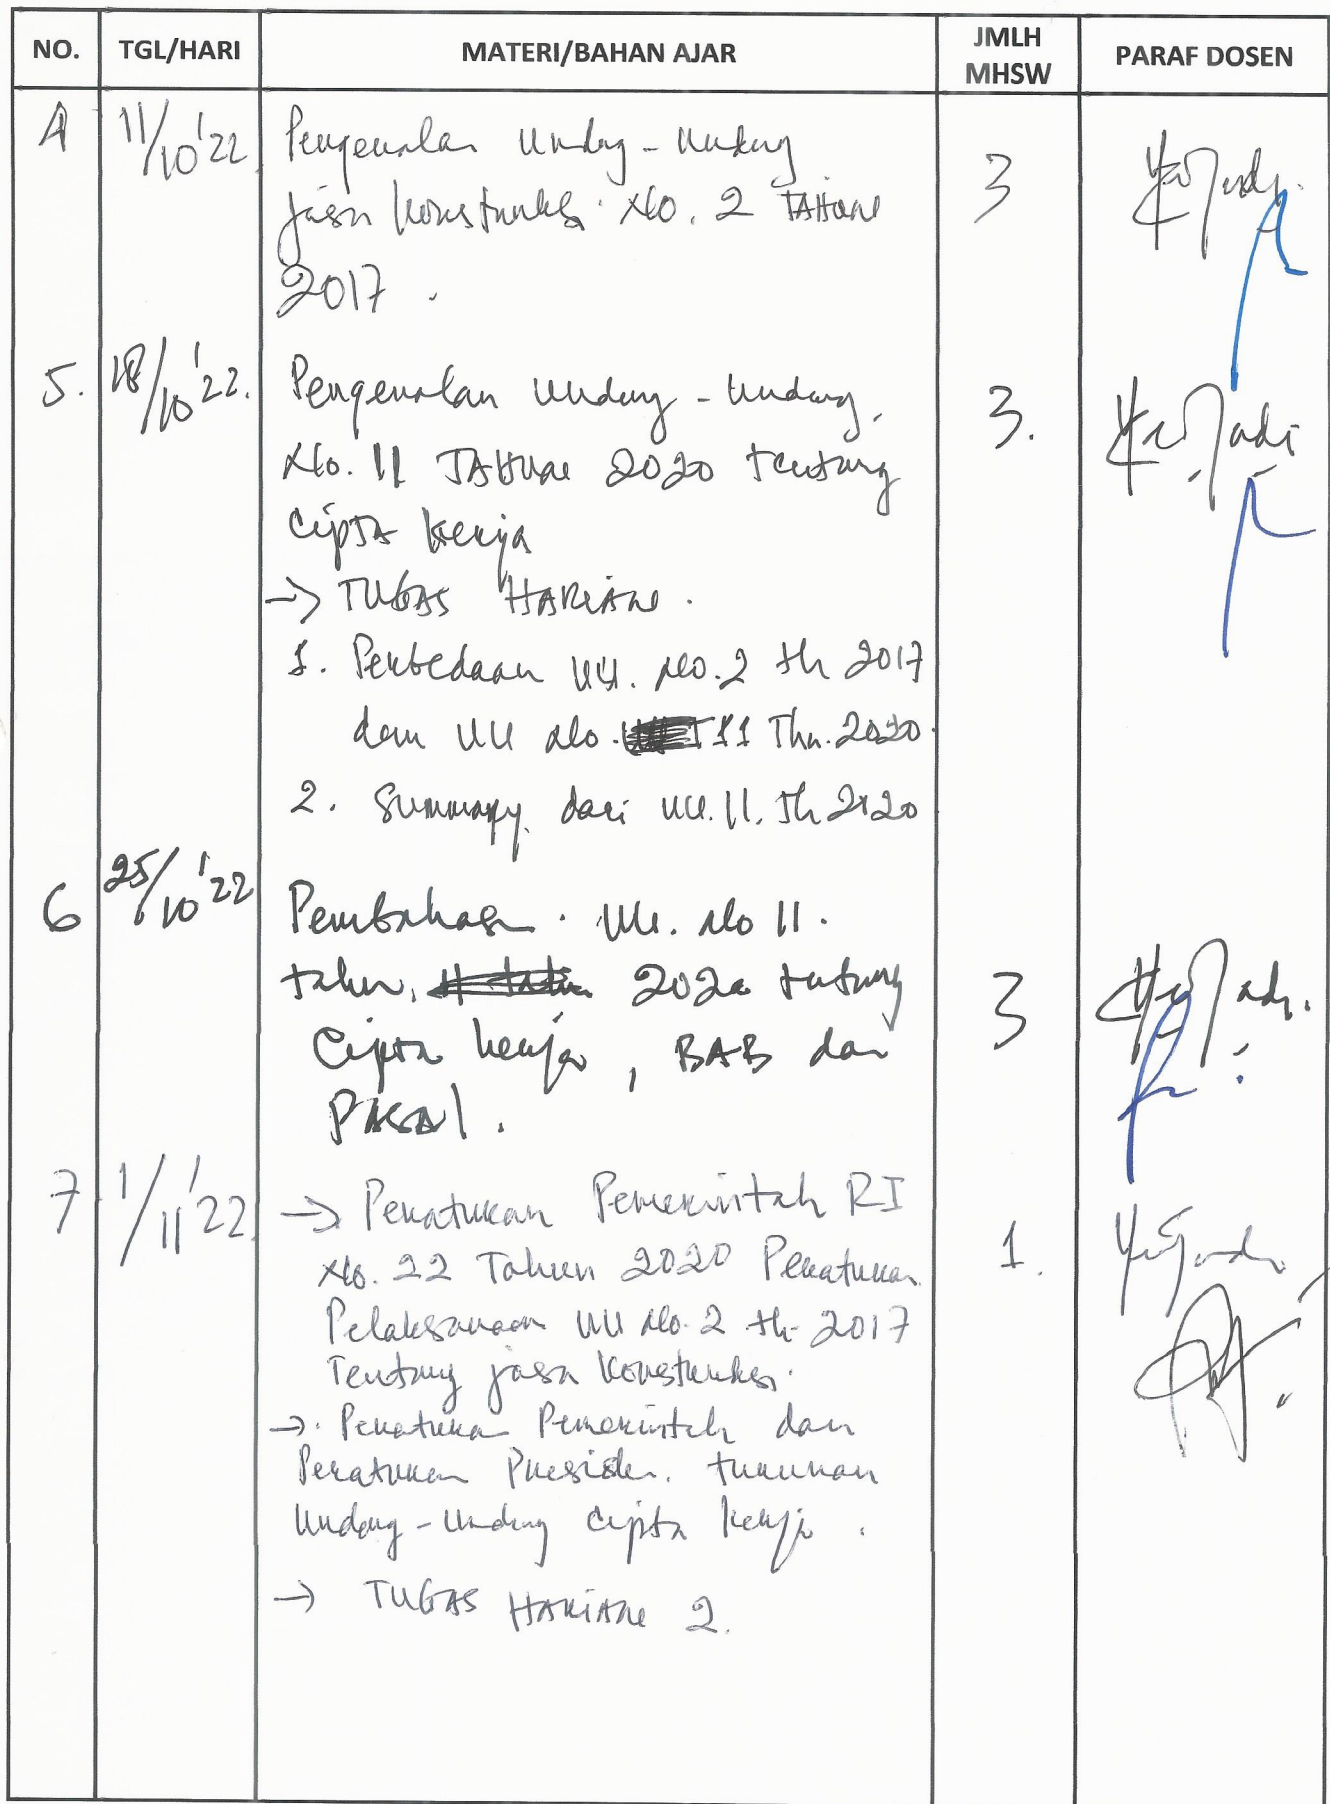 NO. TGL/HARI MATERI/BAHAN AJAR JMLH MHSW PARAF DOSEN
4 11/10'22 Pengenalan Undang-Undang 3
jasa konstruksi No. 2 TAHUN
2017.
5. 18/10'22. Pengenalan Undang-Undang, 3.
No. 11 TAHUN 2020 tentang
Cipta Kerja
→ TUGAS HARIAN.
1. Perbedaan UU. No. 2 th 2017
dan UU No. 11 Thn. 2020.
2. Summary dari UU. 11. Th 2020
6 25/10'22 Pembahasan. UU. No 11. 3
tahun, 2020 tentang
Cipta kerja, BAB dan
PASAL.
7 1/11'22 → Peraturan Pemerintah RI 1.
No. 22 Tahun 2020 Peraturan
Pelaksanaan UU No. 2 th 2017
Tentang jasa Konstruksi.
→. Peraturan Pemerintah dan
Peraturan Presiden. turunan
Undang-Undang Cipta Kerja.
→ TUGAS HARIAN 2.